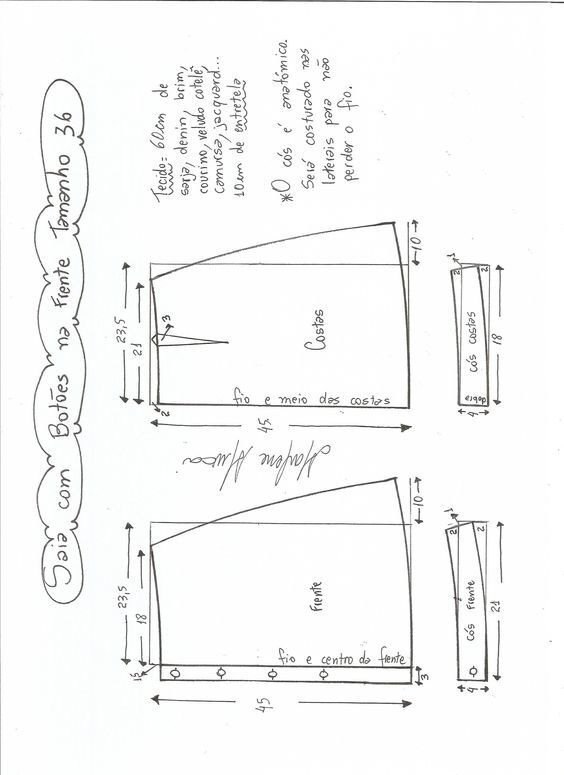 Saia com Botões na Frente Tamanho 36
Tecido: 60cm de
sarja, denin, brim,
courino, veludo cotelê,
camursa, jacquard...
10cm de entretela
*O cós é anatômico.
Será costurado nas
laterais para não
perder o fio.
23,5
21
2
3
Costas
fio e meio das costas
45
10
1
2
2
cós costas
dobra
4
18
Marlene Mukai
23,5
18
1,5
Frente
fio e centro da frente
45
3
10
1
2
2
cós frente
4
21